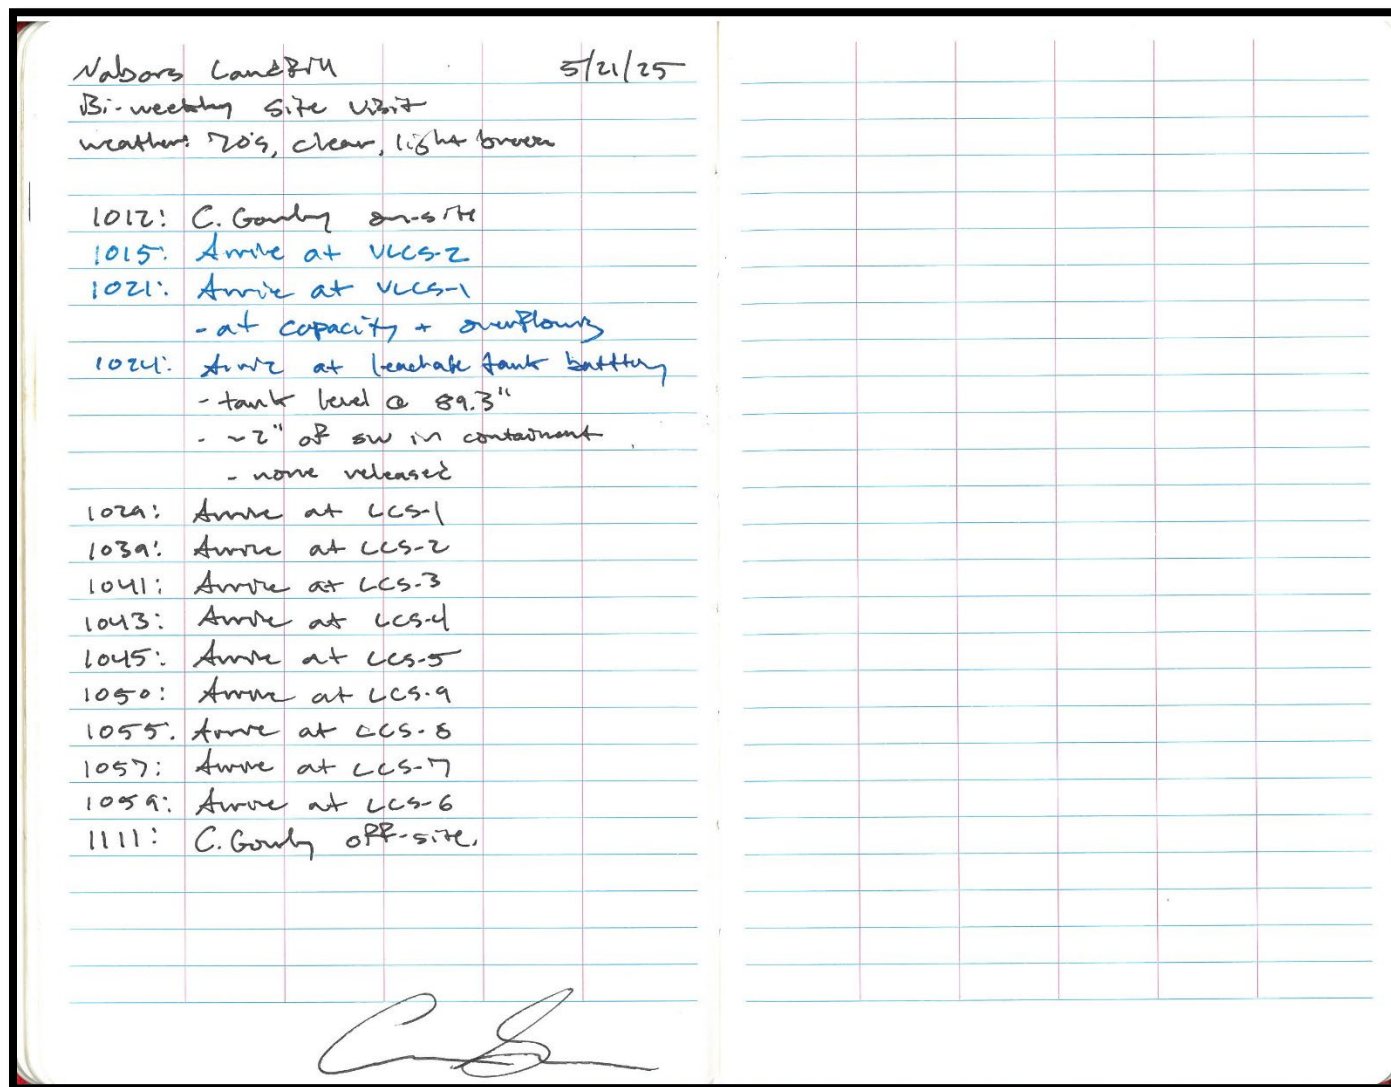 Nabors Landfill 5/21/25
Bi-weekly site visit
weather: 70's, clear, light breeze
1012: C. Gourley on-site
1015: Arrive at VLCS-2
1021: Arrive at VLCS-1
- at capacity + overflowing
1024: Arrive at leachate tank battery
- tank level @ 89.3"
- ~2" of SW in containment
- none released
1029: Arrive at LCS-1
1039: Arrive at LCS-2
1041: Arrive at LCS-3
1043: Arrive at LCS-4
1045: Arrive at LCS-5
1050: Arrive at LCS-9
1055: Arrive at LCS-8
1057: Arrive at LCS-7
1059: Arrive at LCS-6
1111: C. Gourley off-site.